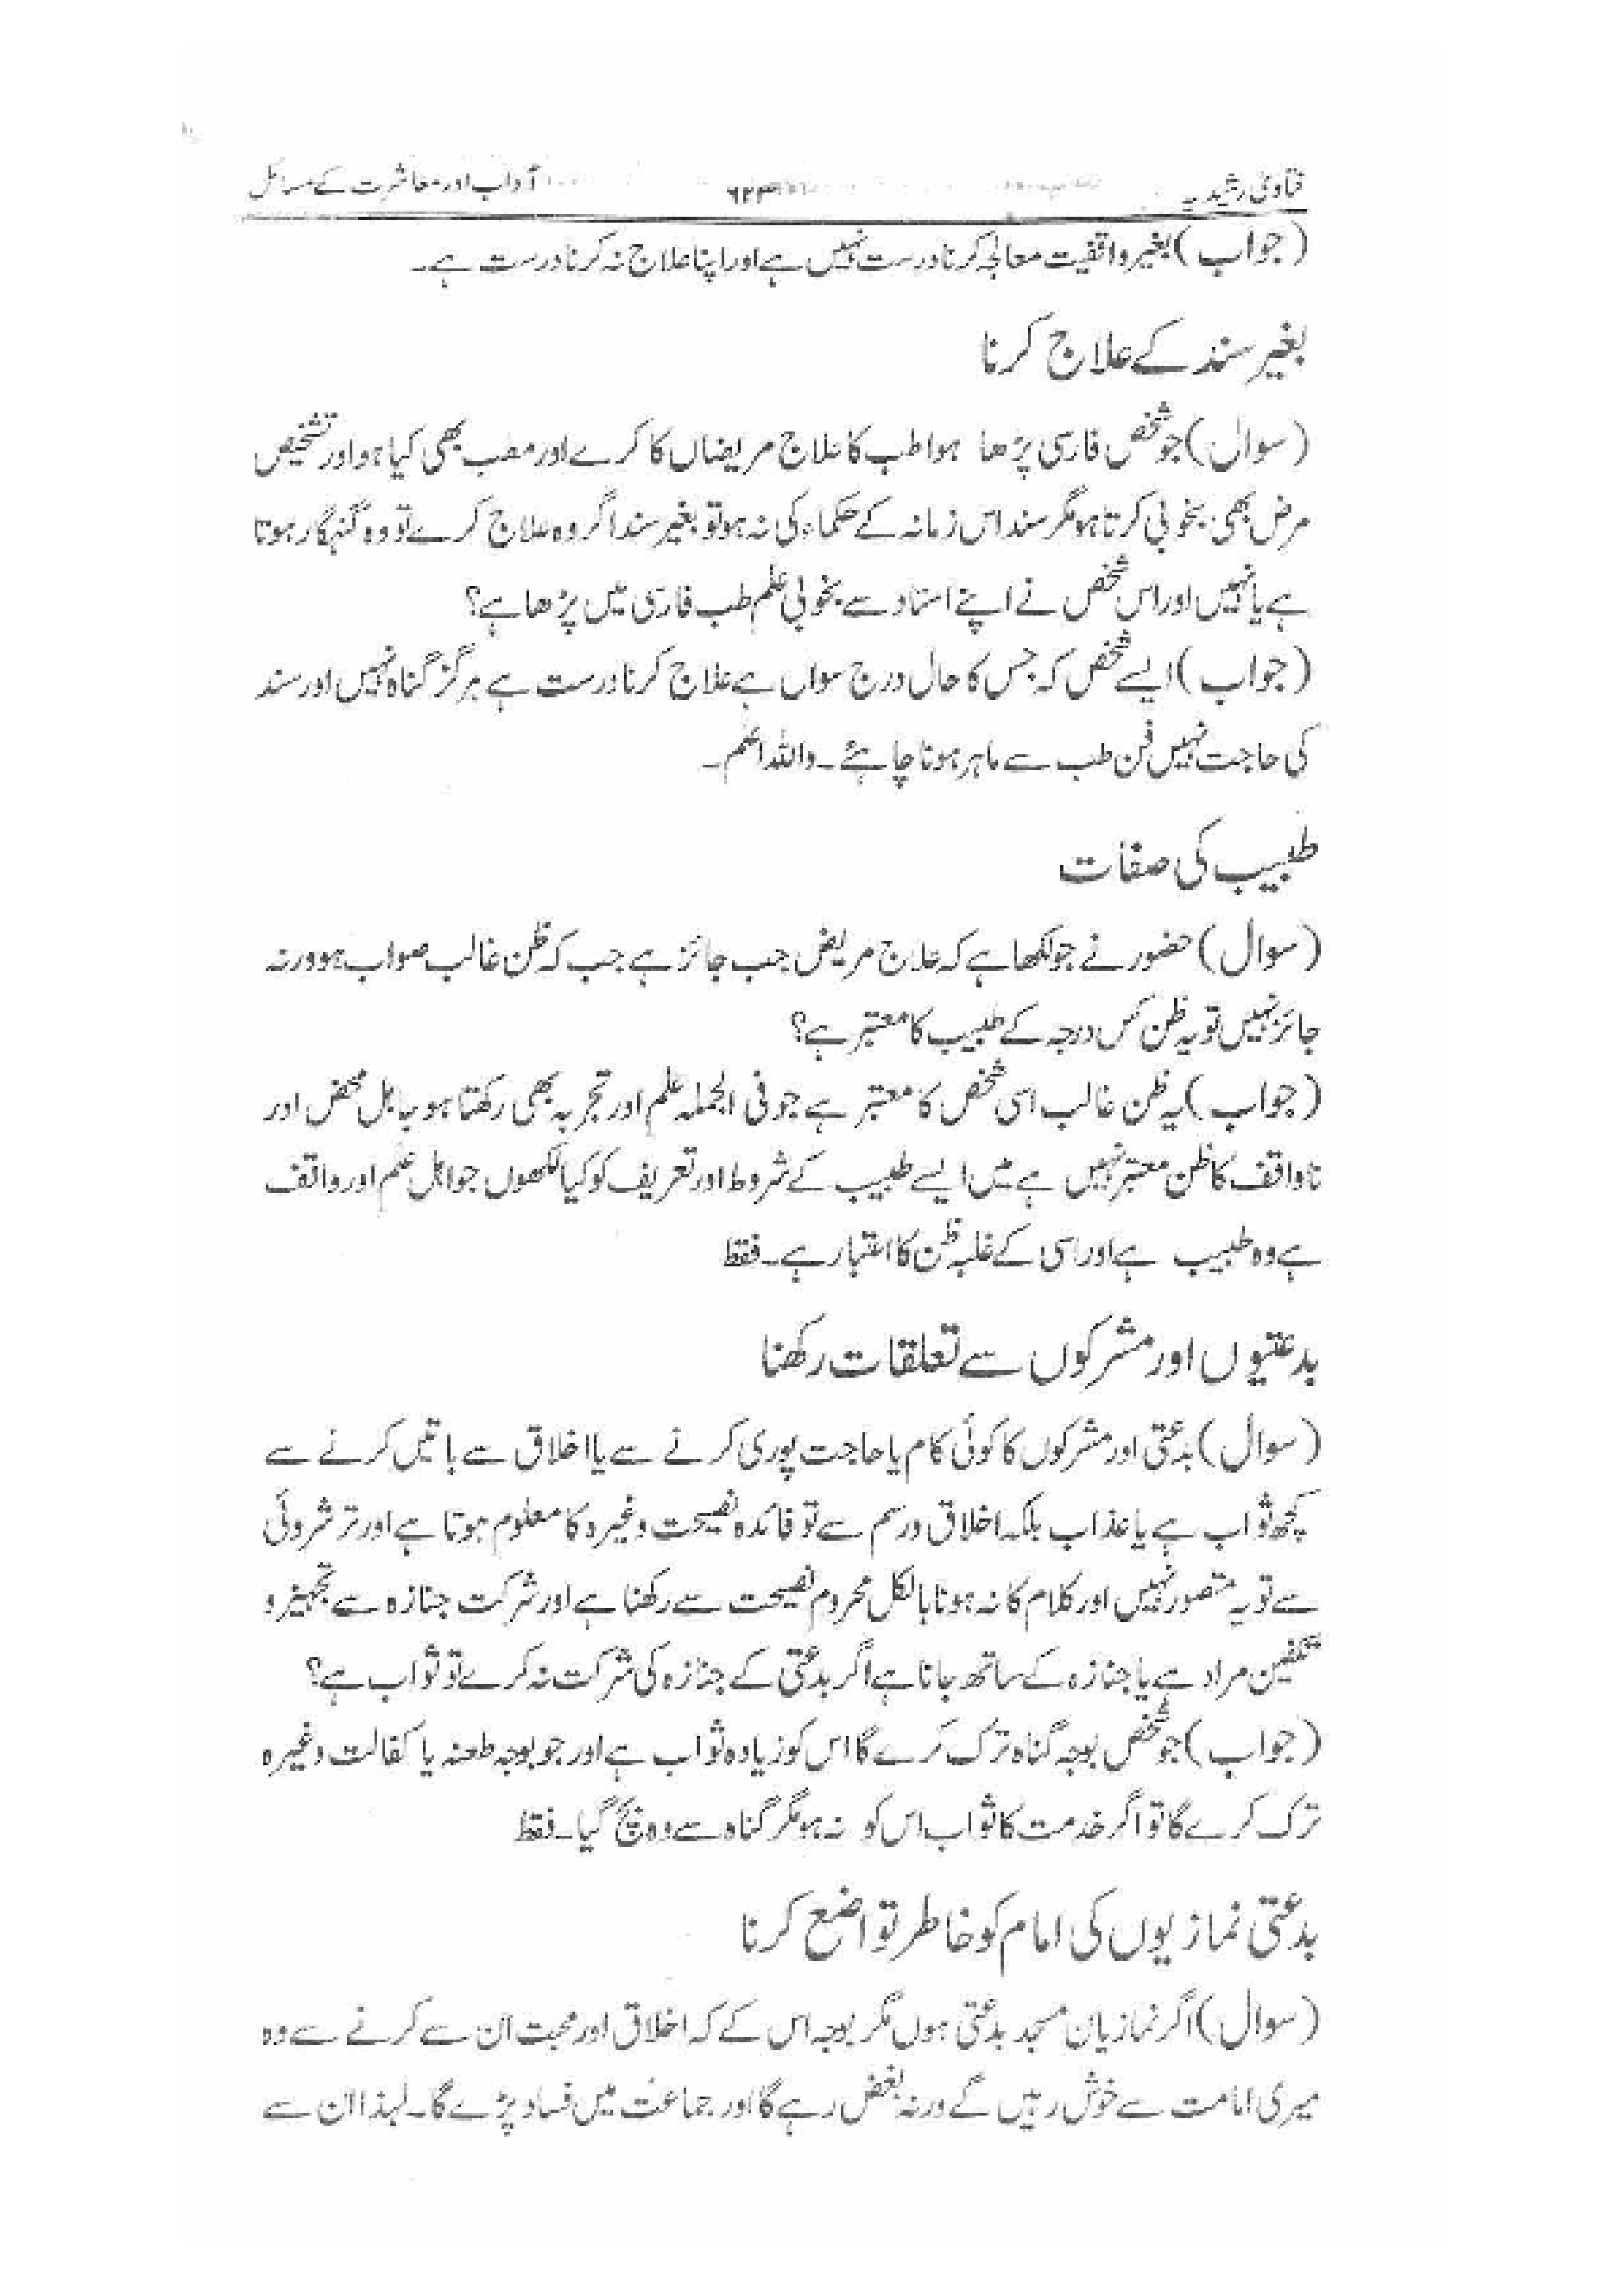 فتاویٰ رشیدیہ ۶۲۳ آداب اور معاشرت کے مسائل
(جواب) بغیر واقفیت معالجہ کرنا درست نہیں ہے اور اپنا علاج نہ کرنا درست ہے۔
بغیر سند کے علاج کرنا
(سوال) جو شخص فارسی پڑھا ہوا طب کا علاج مریضاں کا کرے اور مطب بھی کیا ہو اور تشخیص
مرض بھی بخوبی کرتا ہو مگر سند اس زمانہ کے حکماء کی نہ ہو تو بغیر سند اگر وہ علاج کرے تو وہ گنہگار ہوتا
ہے یا نہیں اور اس شخص نے اپنے استاد سے بخوبی علم طب فارسی میں پڑھا ہے؟
(جواب) ایسے شخص کہ جس کا حال درج سوال ہے علاج کرنا درست ہے ہرگز گناہ نہیں اور سند
کی حاجت نہیں فن طب سے ماہر ہونا چاہئے۔ واللہ اعلم۔
طبیب کی صفات
(سوال) حضور نے جو لکھا ہے کہ علاج مریض جب جائز ہے جب کہ ظن غالب صواب ہو ورنہ
جائز نہیں تو یہ ظن کس درجہ کے طبیب کا معتبر ہے؟
(جواب) یہ ظن غالب اسی شخص کا معتبر ہے جو فی الجملہ علم اور تجربہ بھی رکھتا ہو جاہل محض اور
ناواقف کا ظن معتبر نہیں ہے میں ایسے طبیب کے شروط اور تعریف کو کیا لکھوں جو اہل علم اور واقف
ہے وہ طبیب ہے اور اسی کے غلبہ ظن کا اعتبار ہے۔ فقط
بدعتیوں اور مشرکوں سے تعلقات رکھنا
(سوال) بدعتی اور مشرکوں کا کوئی کام یا حاجت پوری کرنے سے یا اخلاق سے باتیں کرنے سے
کچھ ثواب ہے یا عذاب بلکہ اخلاق ورسم سے تو فائدہ نصیحت وغیرہ کا معلوم ہوتا ہے اور ترشروئی
سے تو یہ متصور نہیں اور کلام کا نہ ہونا بالکل محروم نصیحت سے رکھنا ہے اور شرکت جنازہ سے تجہیز و
تکفین مراد ہے یا جنازہ کے ساتھ جانا ہے اگر بدعتی کے جنازہ کی شرکت نہ کرے تو ثواب ہے؟
(جواب) جو شخص بوجہ گناہ ترک کرے گا اس کو زیادہ ثواب ہے اور جو بوجہ طعنہ یا کفالت وغیرہ
ترک کرے گا تو اگر خدمت کا ثواب اس کو نہ ہو مگر گناہ سے وہ بچ گیا۔ فقط
بدعتی نمازیوں کی امام کو خاطر تواضع کرنا
(سوال) اگر نمازیان مسجد بدعتی ہوں مگر بوجہ اس کے کہ اخلاق اور محبت ان سے کرنے سے وہ
میری امامت سے خوش رہیں گے ورنہ بغض رہے گا اور جماعت میں فساد پڑے گا۔ لہذا ان سے